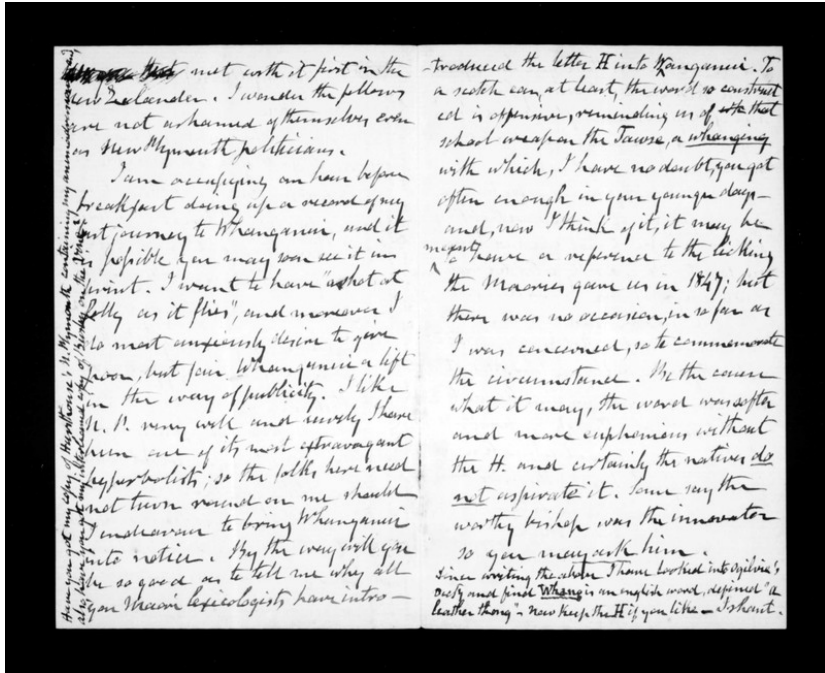 met with it first in the
New Zealander. I wonder the fellows
are not ashamed of themselves even
as New Plymouth politicians.
I am occupying an hour before
breakfast doing up a record of my
last journey to Whanganui, and it
is possible you may soon see it in
print. I want to have "a shot at
folly as it flies", and moreover I
do most anxiously desire to give
poor, but fair Whanganui a lift
in the way of publicity. I like
N. P. very well and surely I have
been one of its most extravagant
hyperbolists; so the folks here need
not turn round on me should
I endeavour to bring Whanganui
into notice. By the way will you
be so good as to tell me why all
you Maori lexicologists have intro-
Have you got my copy of Hursthouse's N. Plymouth containing my
also have you got my copy of on the Vine?
-troduced the letter H into Wanganui. To
a scotch ear, at least, the word so construct
ed is offensive, reminding us of that
school weapon the Tawse, a whanging
with which, I have no doubt, you got
often enough in your younger days—
and, now I think of it, it may be
meant
to have a reference to the licking
the Maories gave us in 1847; but
there was no occasion, in so far as
I was concerned, so to commemorate
the circumstance. Be the cause
what it may, the word was softer
and more euphonious without
the H. and certainly the natives do
not aspirate it. Some say the
worthy bishop was the innovator
so you may ask him.
Since writing the above I have looked into Ogilvie's
and find Whang is an english word, defined "a
leather thong" – Now keep the H if you like – I shant.